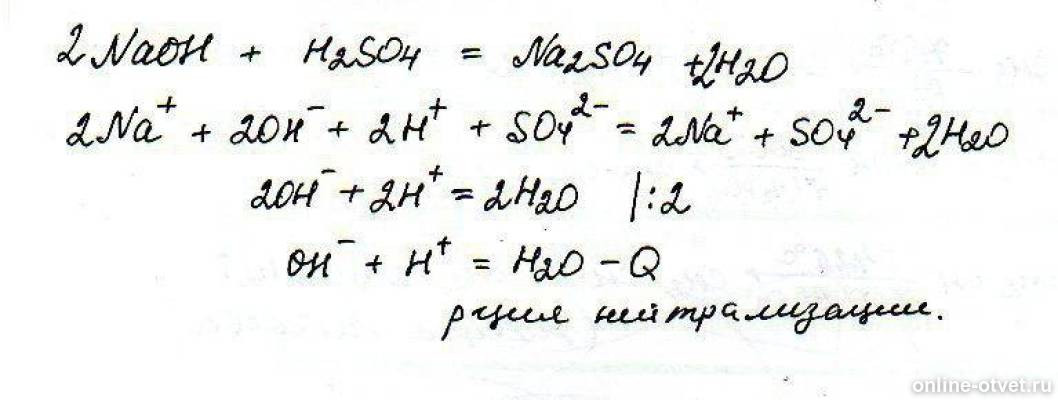 2NaOH + H2SO4 = Na2SO4 + 2H2O
2Na⁺ + 2OH⁻ + 2H⁺ + SO4²⁻ = 2Na⁺ + SO4²⁻ + 2H2O
2OH⁻ + 2H⁺ = 2H2O |:2
OH⁻ + H⁺ = H2O - Q
рция нейтрализации.
online-otvet.ru